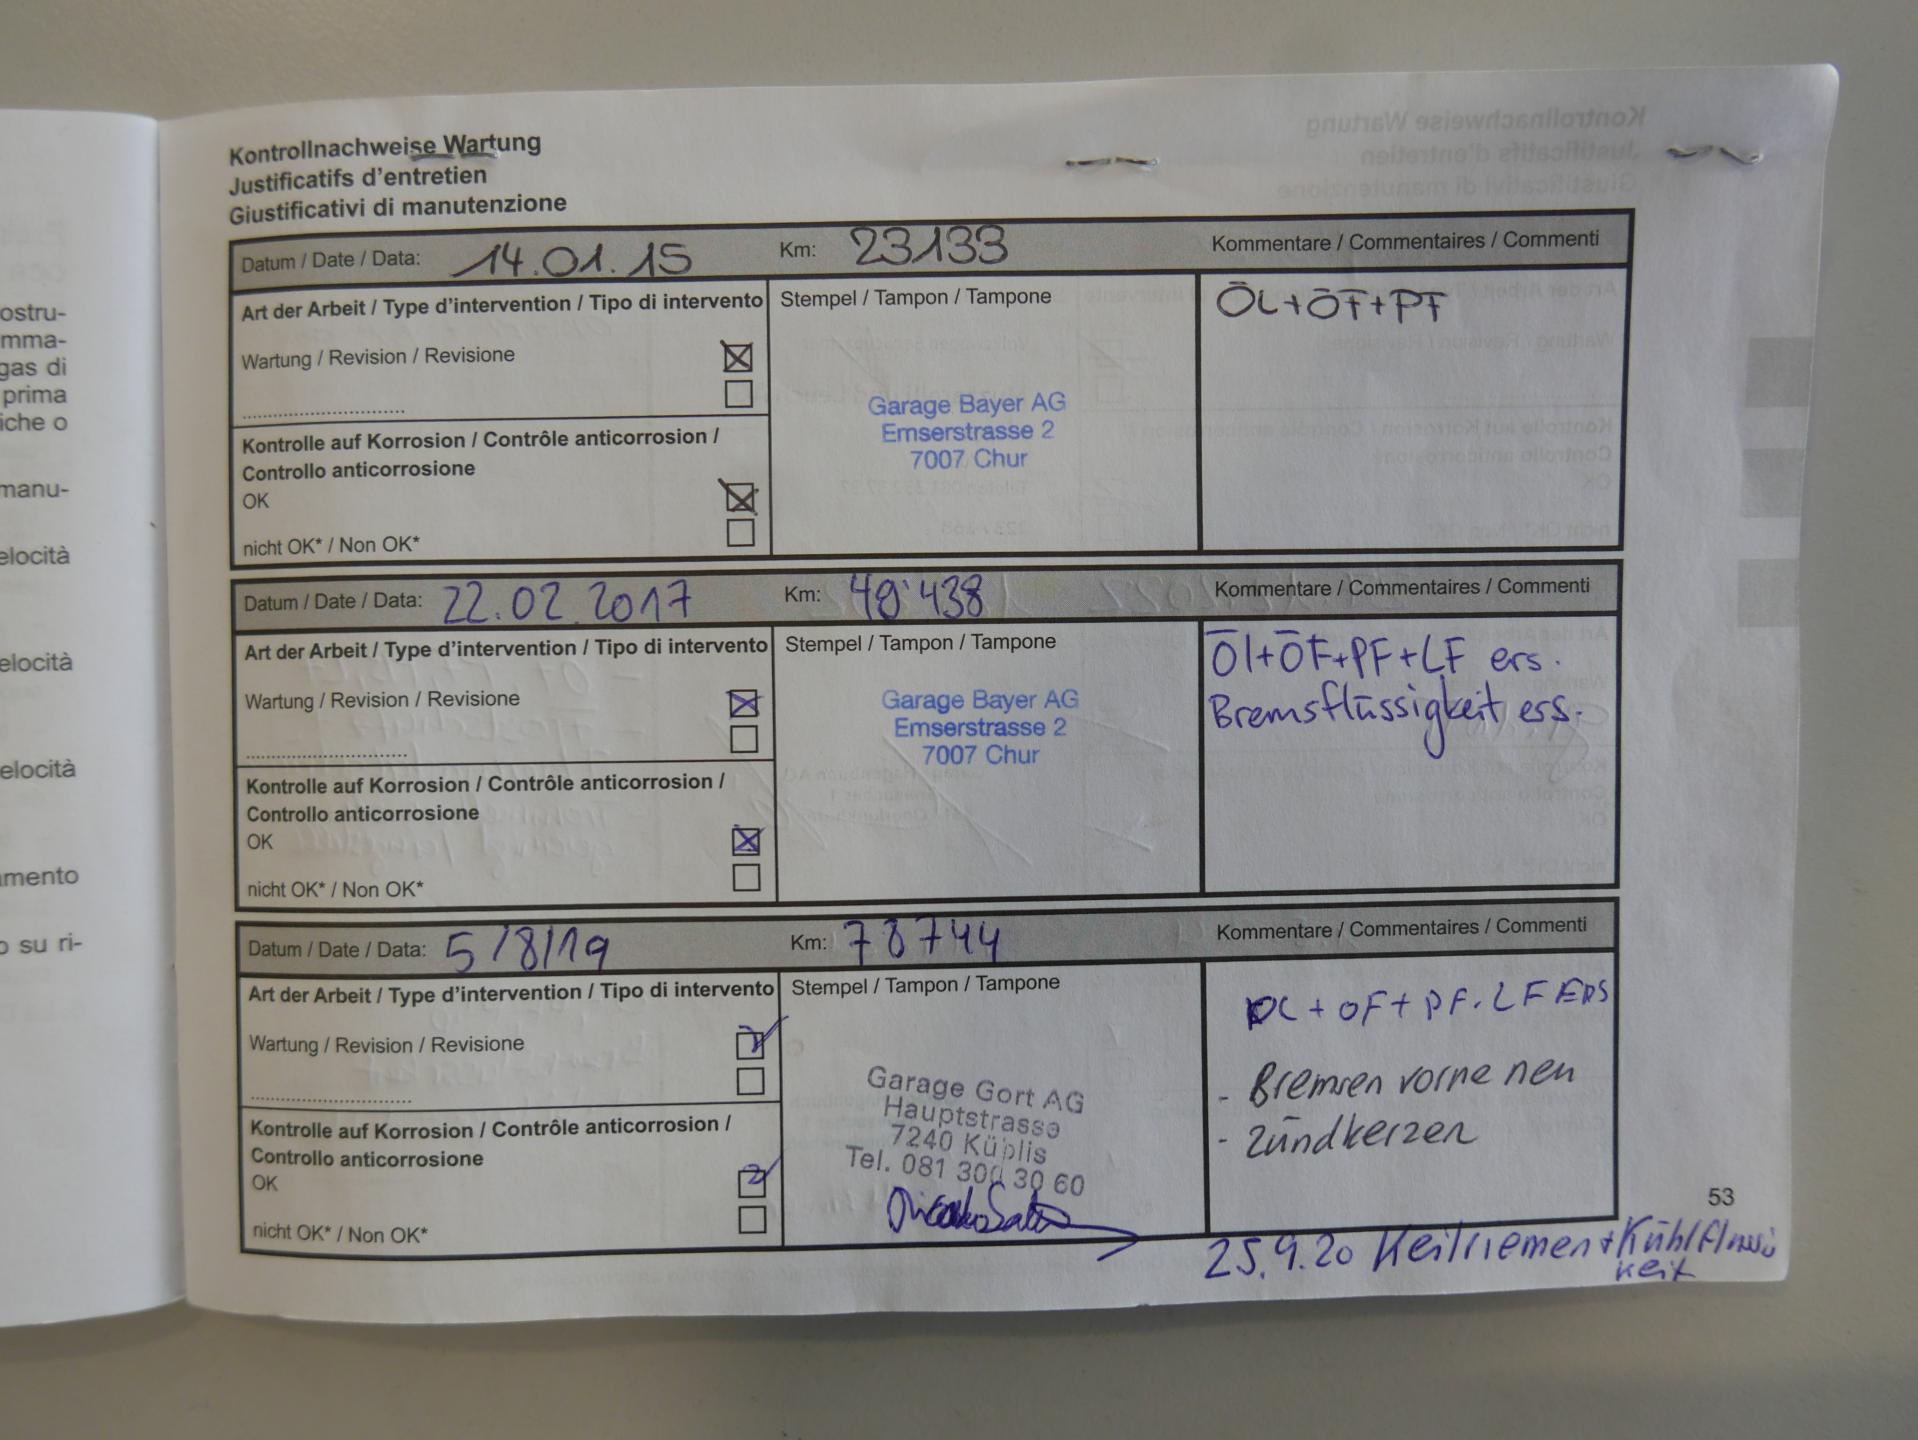 ostru-
mma-
gas di
prima
iche o
manu-
elocità
elocità
elocità
amento
o su ri-
Kontrollnachweise Wartung
Justificatifs d'entretien
Giustificativi di manutenzione
Datum / Date / Data: 14.01.15 Km: 23133 Kommentare / Commentaires / Commenti
Art der Arbeit / Type d'intervention / Tipo di intervento Stempel / Tampon / Tampone ÖL+ÖF+PF
Wartung / Revision / Revisione
Garage Bayer AG
Emserstrasse 2
7007 Chur
Kontrolle auf Korrosion / Contrôle anticorrosion /
Controllo anticorrosione
OK
nicht OK* / Non OK*
Datum / Date / Data: 22.02.2017 Km: 48'438 Kommentare / Commentaires / Commenti
Art der Arbeit / Type d'intervention / Tipo di intervento Stempel / Tampon / Tampone Öl+ÖF+PF+LF ers.
Wartung / Revision / Revisione Bremsflüssigkeit ers.
Garage Bayer AG
Emserstrasse 2
7007 Chur
Kontrolle auf Korrosion / Contrôle anticorrosion /
Controllo anticorrosione
OK
nicht OK* / Non OK*
Datum / Date / Data: 5/8/19 Km: 78744 Kommentare / Commentaires / Commenti
Art der Arbeit / Type d'intervention / Tipo di intervento Stempel / Tampon / Tampone OL + OF + PF. LF ERS
Wartung / Revision / Revisione
- Bremsen vorne neu
- Zündkerzen
Garage Gort AG
Hauptstrasse
7240 Küblis
Tel. 081 300 30 60
Kontrolle auf Korrosion / Contrôle anticorrosion /
Controllo anticorrosione
OK
nicht OK* / Non OK*
53
25.9.20 Keilriemen + Kühlflüssi
keit